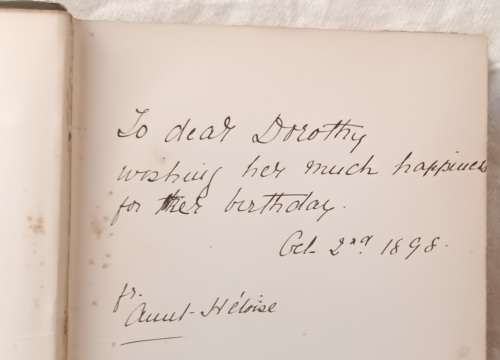 To dear Dorothy
wishing her much happiness
for her birthday.
Oct 2nd 1898.
fr.
Aunt Héloise